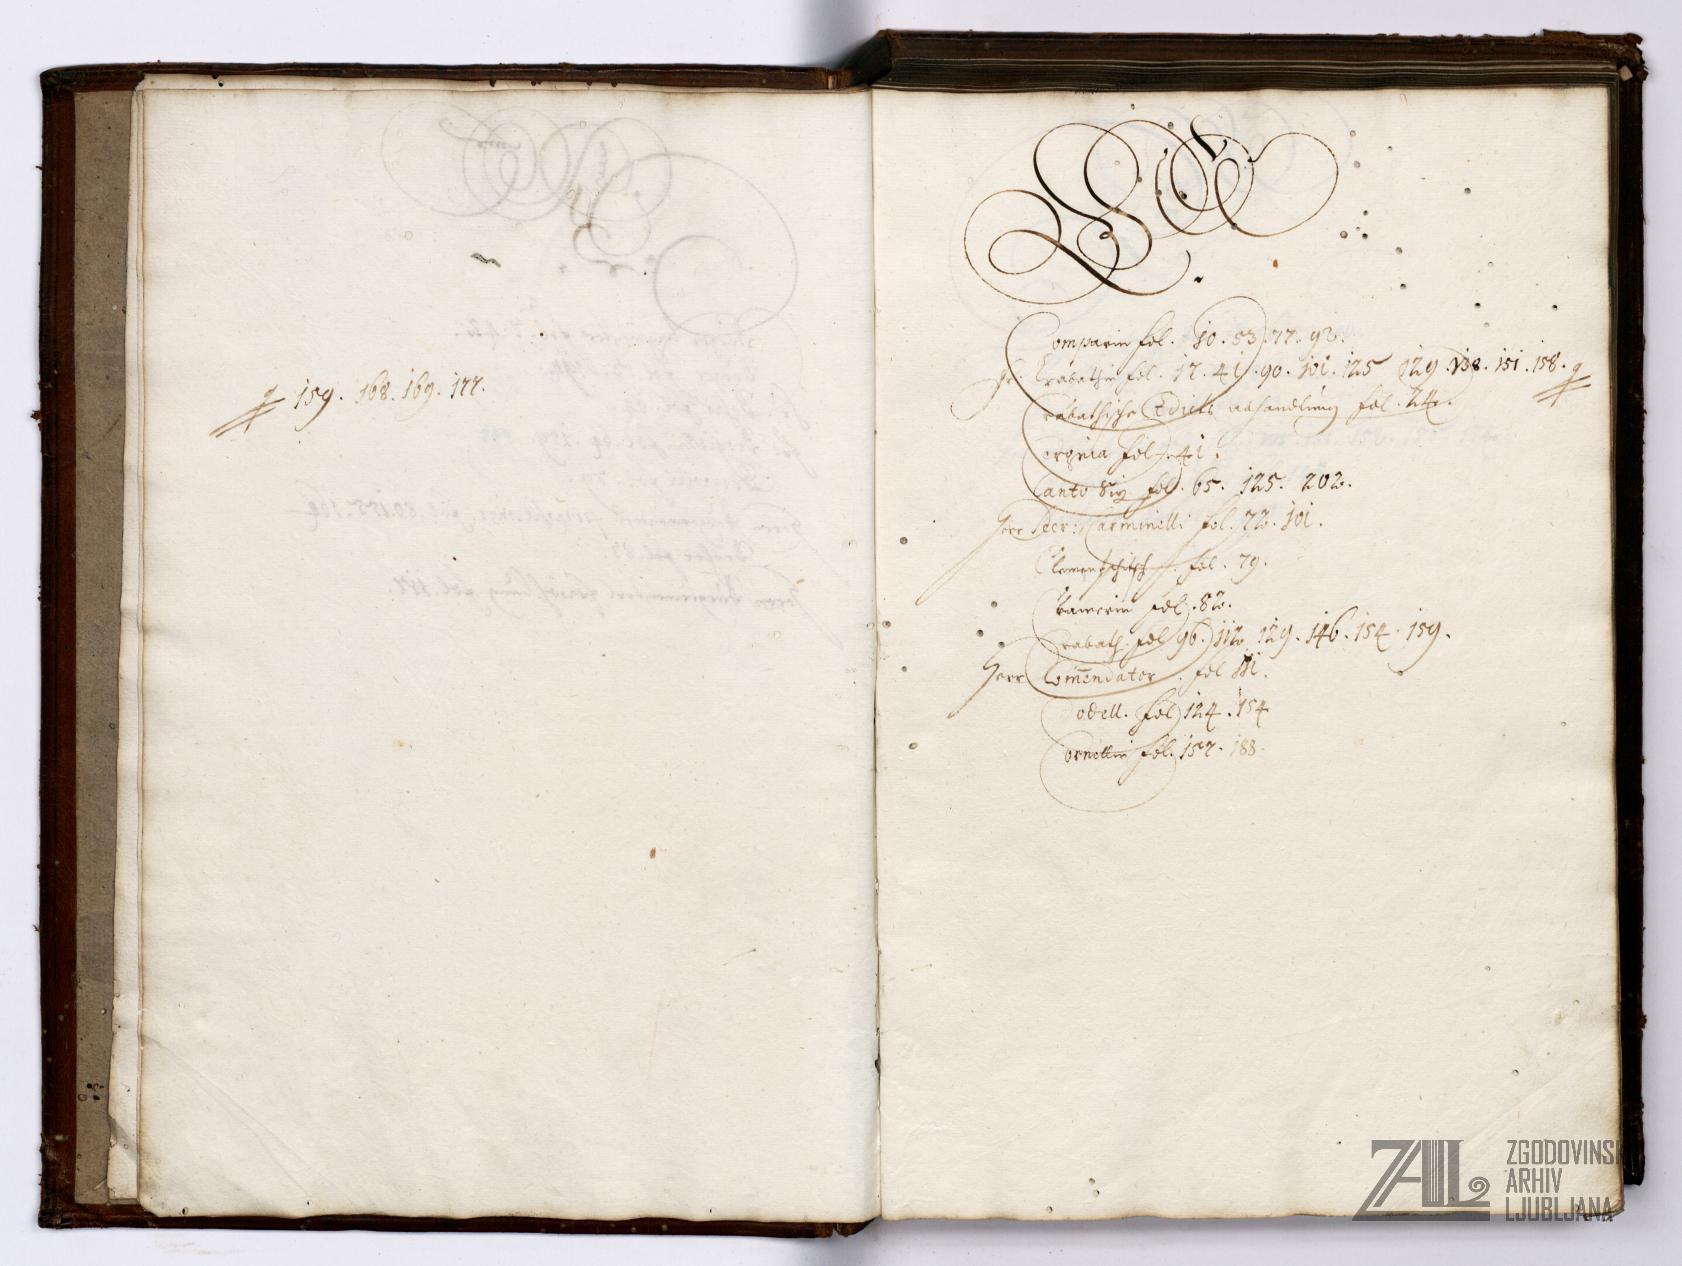 159. 168. 169. 177.
C.
Comparin fol. 10. 53. 77. 92.
Crabathin fol. 17. 41. 90. 101. 125 129. 138. 151. 158.
Crabathische Edicts abhandlung fol. 24.
Corgnia fol. 41.
Canto fol. 65. 125. 202.
Herr Carminelli fol. 72. 101.
fol. 79.
Camerin fol. 82.
Crabath. fol 96. 112. 129. 146. 154. 159.
Herr Com̄endator. fol 111.
Codell. fol 124. 154
Cornellin fol. 157. 188.
ZAL ZGODOVINSKI
ARHIV
LJUBLJANA